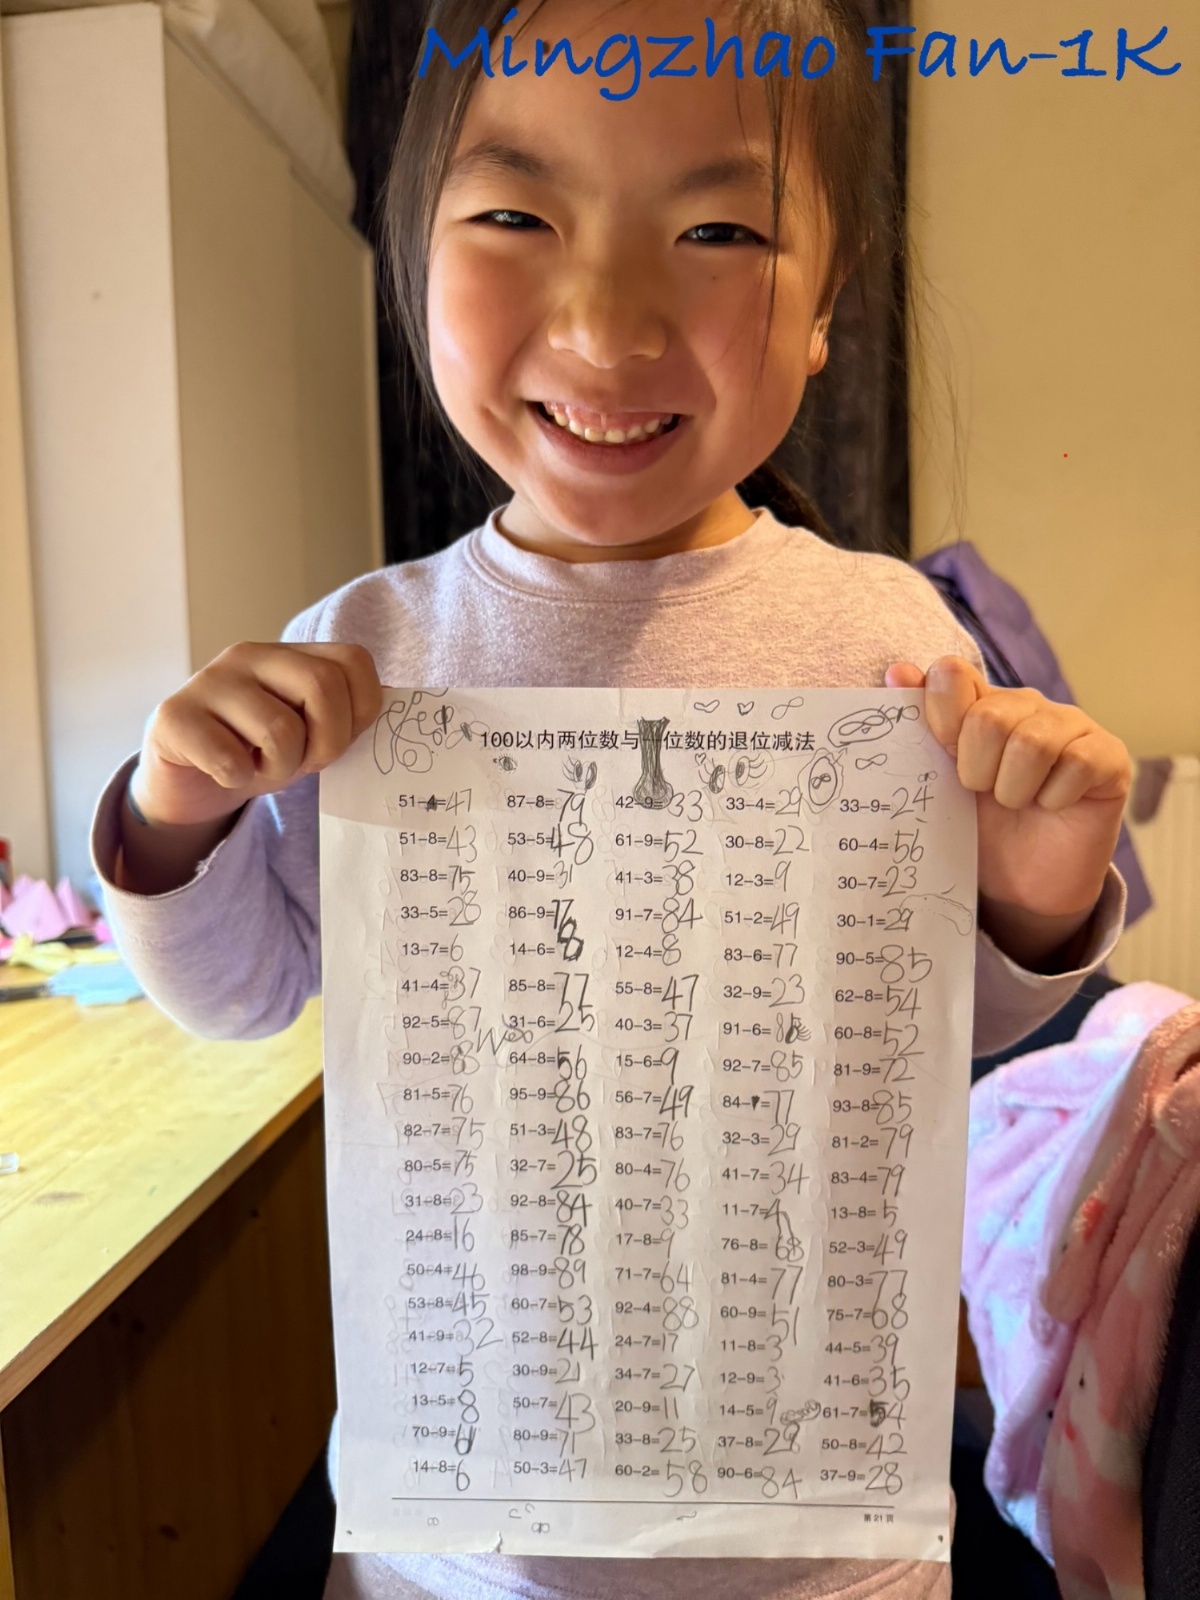 Mingzhao Fan-1K
100以内两位数与一位数的退位减法
51-4=47 87-8=79 42-9=33 33-4=29 33-9=24
51-8=43 53-5=48 61-9=52 30-8=22 60-4=56
83-8=75 40-9=31 41-3=38 12-3=9 30-7=23
33-5=28 86-9=76 91-7=84 51-2=49 30-1=29
13-7=6 14-6=8 12-4=8 83-6=77 90-5=85
41-4=37 85-8=77 55-8=47 32-9=23 62-8=54
92-5=87 31-6=25 40-3=37 91-6=85 60-8=52
90-2=88 64-8=56 15-6=9 92-7=85 81-9=72
81-5=76 95-9=86 56-7=49 84-7=77 93-8=85
82-7=75 51-3=48 83-7=76 32-3=29 81-2=79
80-5=75 32-7=25 80-4=76 41-7=34 83-4=79
31-8=23 92-8=84 40-7=33 11-7=4 13-8=5
24-8=16 85-7=78 17-8=9 76-8=68 52-3=49
50-4=46 98-9=89 71-7=64 81-4=77 80-3=77
53-8=45 60-7=53 92-4=88 60-9=51 75-7=68
41-9=32 52-8=44 24-7=17 11-8=3 44-5=39
12-7=5 30-9=21 34-7=27 12-9=3 41-6=35
13-5=8 50-7=43 20-9=11 14-5=9 61-7=54
70-9=61 80-9=71 33-8=25 37-8=29 50-8=42
14-8=6 50-3=47 60-2=58 90-6=84 37-9=28
第 21 页